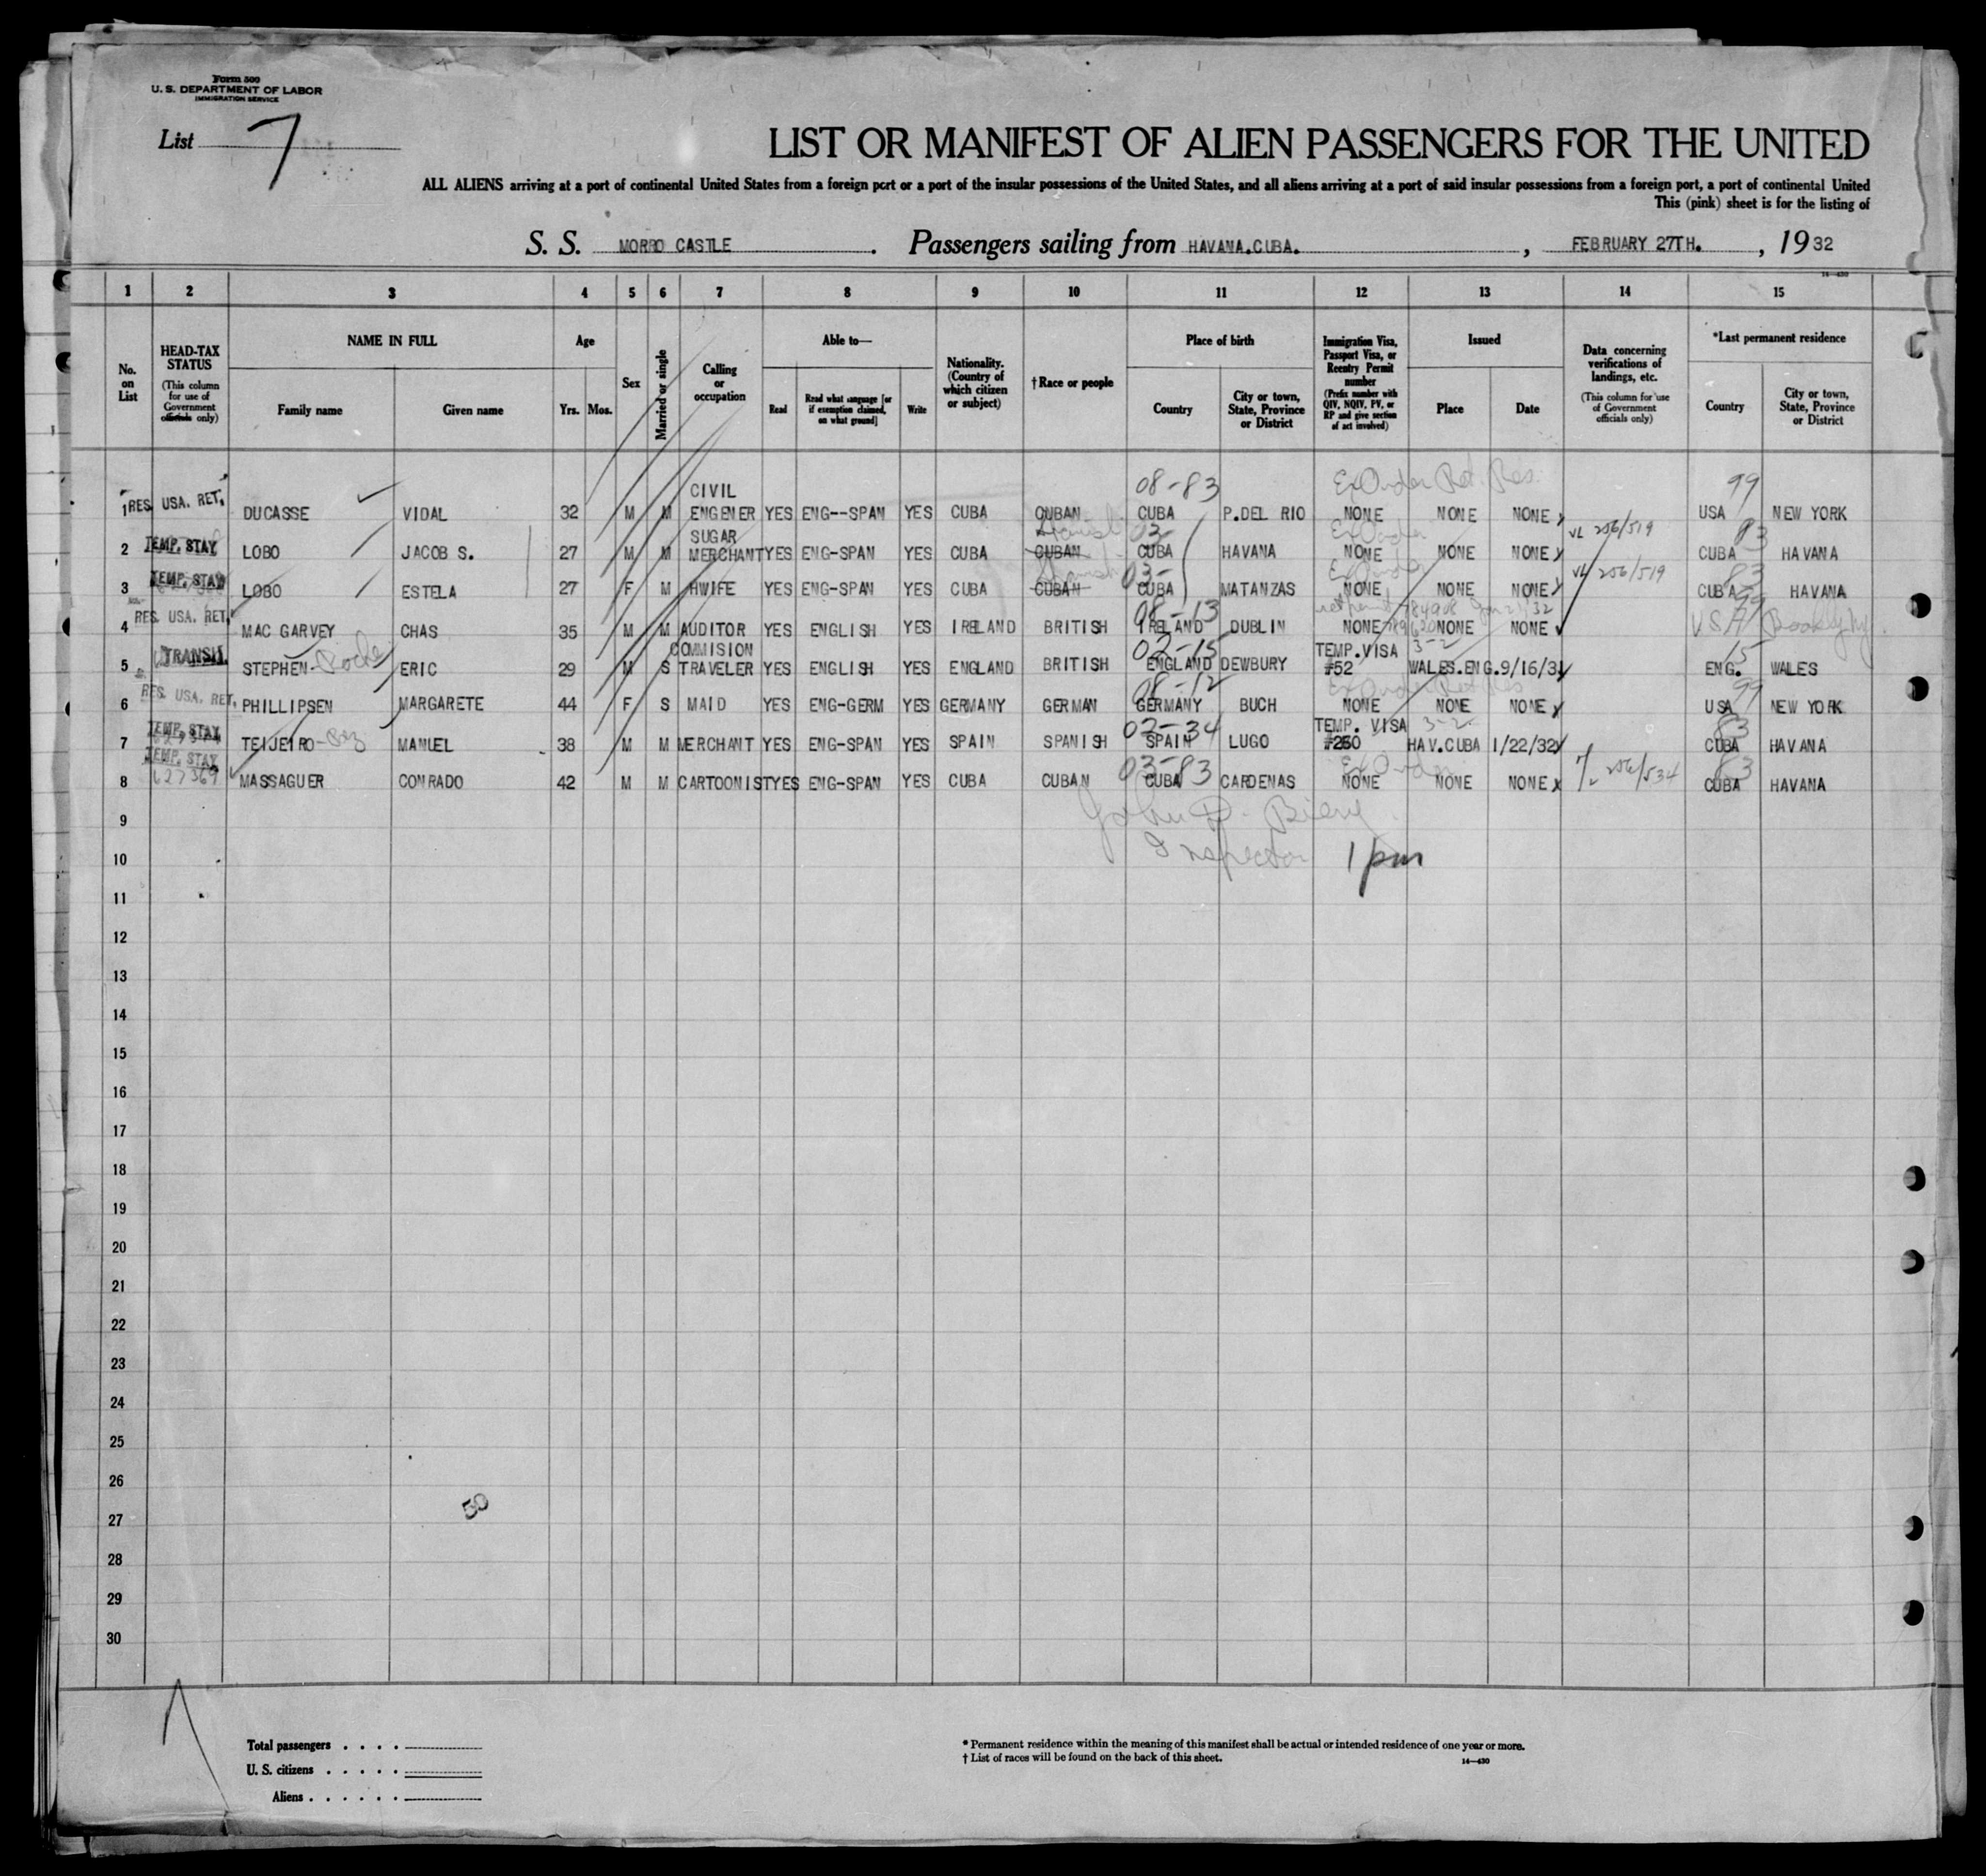 Form 500
U. S. DEPARTMENT OF LABOR
IMMIGRATION SERVICE
List 7
LIST OR MANIFEST OF ALIEN PASSENGERS FOR THE UNITED
ALL ALIENS arriving at a port of continental United States from a foreign port or a port of the insular possessions of the United States, and all aliens arriving at a port of said insular possessions from a foreign port, a port of continental United
This (pink) sheet is for the listing of
S. S. MORRO CASTLE. Passengers sailing from HAVANA.CUBA., FEBRUARY 27TH., 1932
14—430
1 2 3 4 5 6 7 8 9 10 11 12 13 14 15
No. on List
HEAD-TAX STATUS (This column for use of Government officials only)
NAME IN FULL
Family name Given name
Age
Yrs. Mos.
Sex
Married or single
Calling or occupation
Able to—
Read Read what language [or if exemption claimed, on what ground] Write
Nationality. (Country of which citizen or subject)
† Race or people
Place of birth
Country City or town, State, Province or District
Immigration Visa, Passport Visa, or Reentry Permit number (Prefix number with QIV, NQIV, PV, or RP and give section of act involved)
Issued
Place Date
Data concerning verifications of landings, etc. (This column for use of Government officials only)
*Last permanent residence
Country City or town, State, Province or District
CIVIL 08-83 Ex Order Ret. Res. 99
1 RES. USA. RET. DUCASSE VIDAL 32 M M ENGENER YES ENG--SPAN YES CUBA CUBAN CUBA P.DEL RIO NONE NONE NONE USA NEW YORK
SUGAR Spanish 03- Ex Order VL 256/519 83
2 TEMP. STAY LOBO JACOB S. 27 M M MERCHANT YES ENG-SPAN YES CUBA CUBAN CUBA HAVANA NONE NONE NONE CUBA HAVANA
Spanish 03- Ex Order VL 256/519 83
3 TEMP. STAY LOBO ESTELA 27 F M HWIFE YES ENG-SPAN YES CUBA CUBAN CUBA MATANZAS NONE NONE NONE CUBA HAVANA
08-13 99
4 RES. USA. RET. MAC GARVEY CHAS 35 M M AUDITOR YES ENGLISH YES IRELAND BRITISH IRELAND DUBLIN NONE NONE NONE USA
COMMISION 02-15 TEMP.VISA 3-2 15
5 TRANSIT STEPHEN- ERIC 29 M S TRAVELER YES ENGLISH YES ENGLAND BRITISH ENGLAND DEWBURY #52 WALES.ENG. 9/16/31 ENG. WALES
08-12 Ex Order Ret Res 99
6 RES. USA. RET. PHILLIPSEN MARGARETE 44 F S MAID YES ENG-GERM YES GERMANY GERMAN GERMANY BUCH NONE NONE NONE USA NEW YORK
02-34 TEMP. VISA 3-2 83
7 TEMP. STAY TEIJEIRO- MANUEL 38 M M MERCHANT YES ENG-SPAN YES SPAIN SPANISH SPAIN LUGO #260 HAV.CUBA 1/22/32 CUBA HAVANA
TEMP. STAY 03-83 Ex Order 256/534 83
8 627369 MASSAGUER CONRADO 42 M M CARTOONIST YES ENG-SPAN YES CUBA CUBAN CUBA CARDENAS NONE NONE NONE CUBA HAVANA
9
10 Inspector 1 pm
11
12
13
14
15
16
17
18
19
20
21
22
23
24
25
26
27 50
28
29
30
Total passengers
U. S. citizens
Aliens
* Permanent residence within the meaning of this manifest shall be actual or intended residence of one year or more.
† List of races will be found on the back of this sheet.
14—430